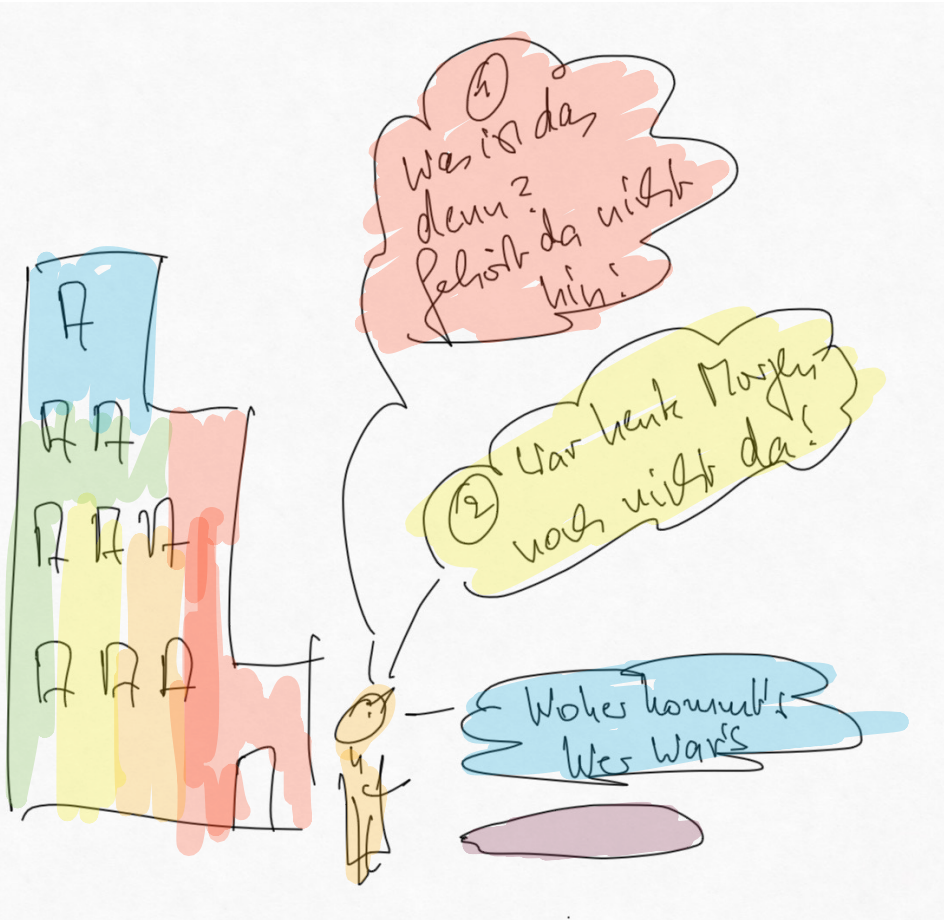 1
Was ist das
denn?
Gehört da nicht
hin!
2
War heute Morgen
noch nicht da!
Woher kommt's
Wer war's